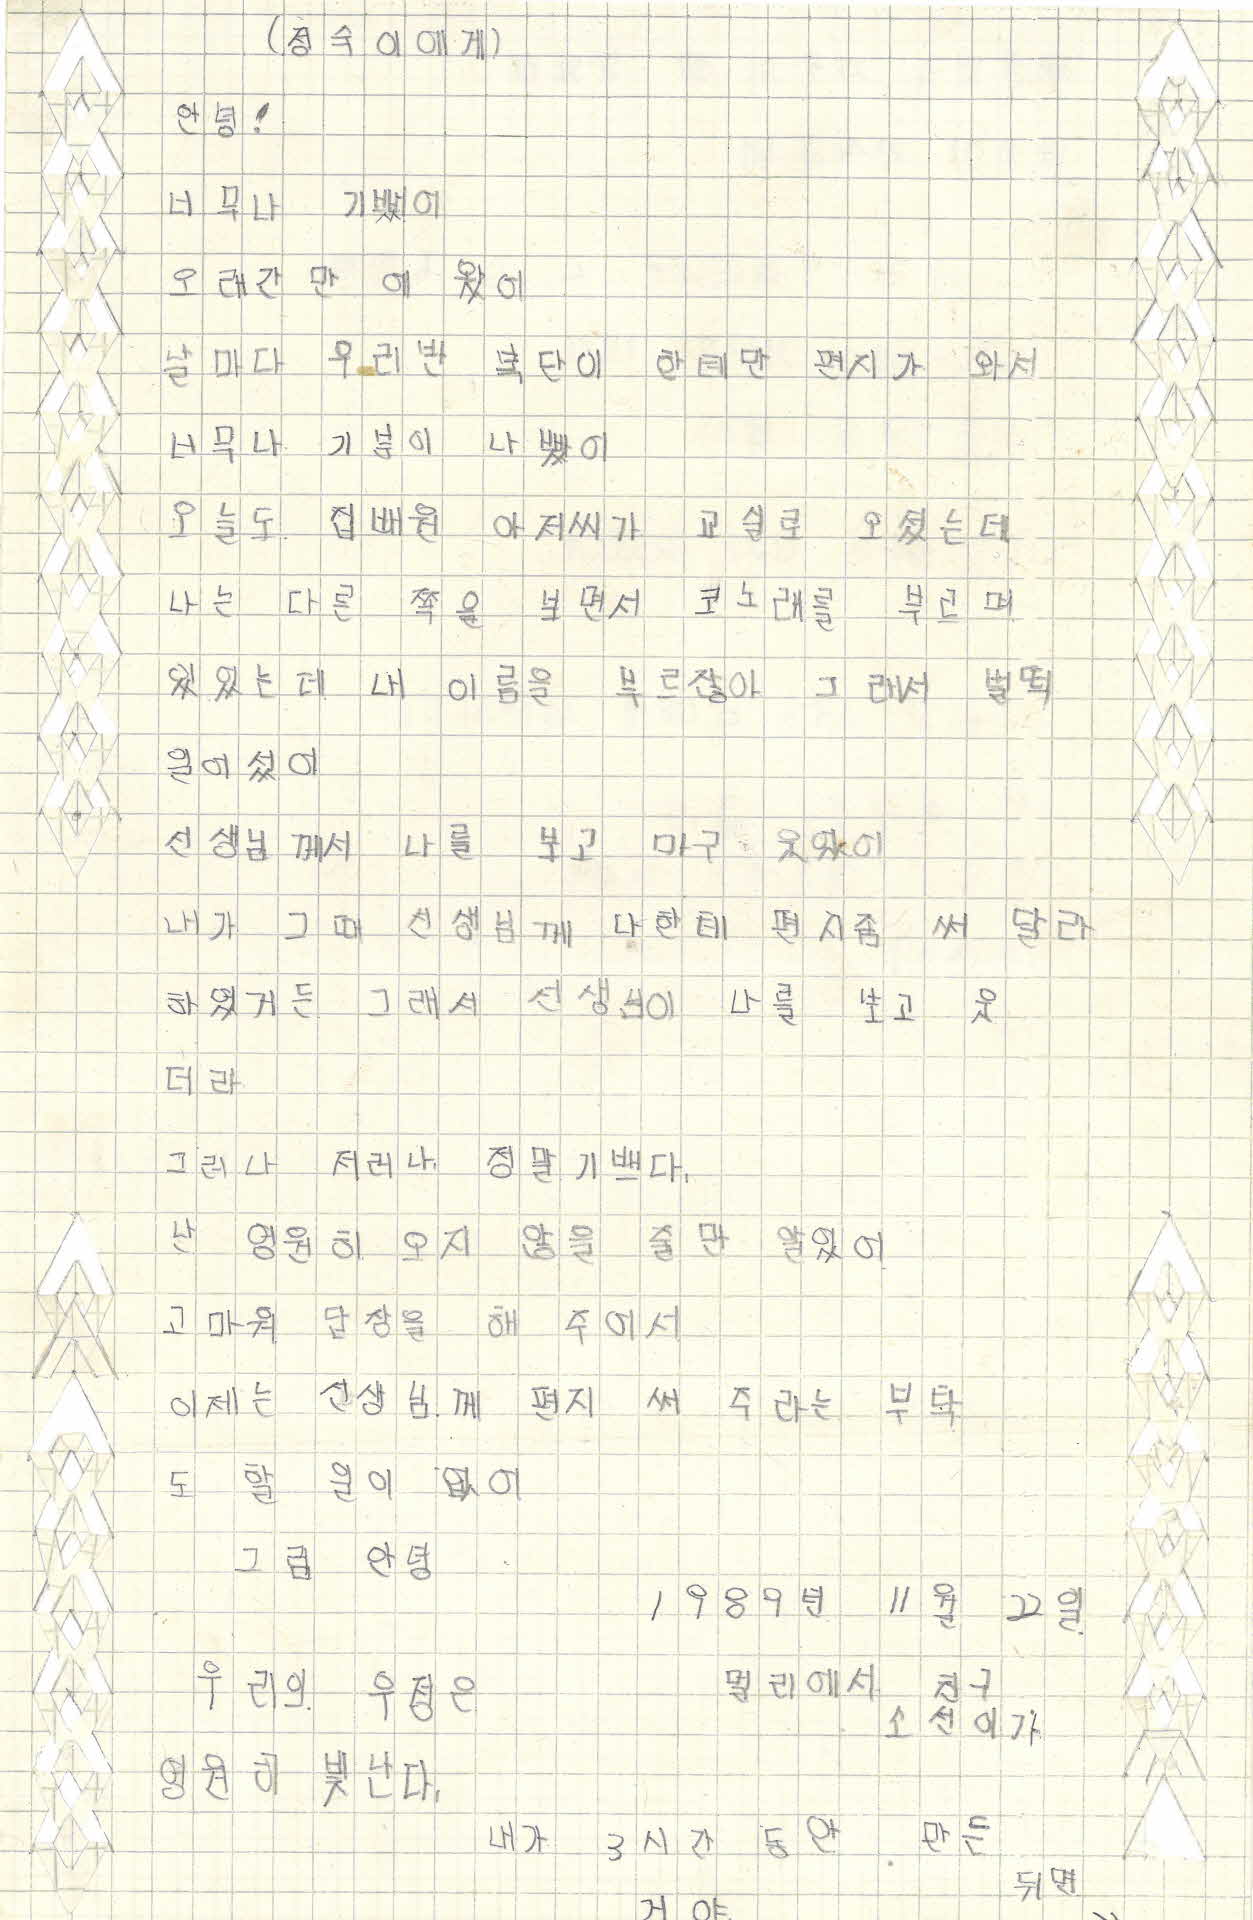 (정숙이에게)
안녕!
너무나 기뻤어
오래간만에 왔어
날마다 우리반 복단이 한테만 편지가 와서
너무나 기분이 나빴어
오늘도 집배원 아저씨가 교실로 오셨는데
나는 다른 쪽을 보면서 코노래를 부르며
있었는데 내 이름을 부르잖아 그래서 벌떡
일어섰어
선생님께서 나를 보고 마구 웃었어
내가 그때 선생님께 나한테 편지좀 써 달라
하였거든 그래서 선생님이 나를 보고 웃
더라
그러나 저러나 정말기쁘다.
난 영원히 오지 않을 줄만 알았어
고마워 답장을 해 주어서
이제는 선생님께 편지 써 주라는 부탁
도 할 일이 없어
그럼 안녕
1989년 11월 22일
우리의 우정은 멀리에서 친구
소선이가
영원히 빛난다.
내가 3시간 동안 만든
뒤면
거야